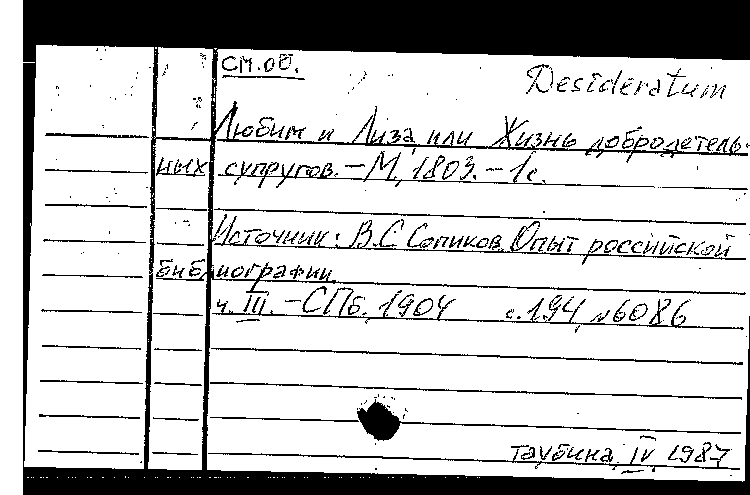 см.об.
Desideratum
Любим и Лиза, или Жизнь добродетель-
ных супругов. – М., 1803. – 1 с.
Источник: В.С. Сопиков. Опыт российской
библиографии
ч. III. – СПб., 1904 с. 194, №6086
Таубина, IV, 1987